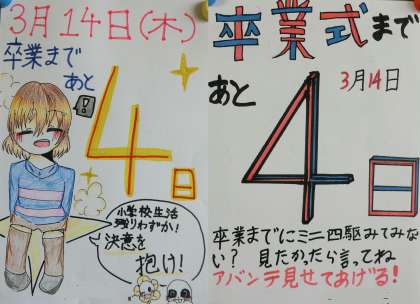 3月14日(木)
卒業まで
あと
!
4日
小学校生活
残りわずか!
決意を
抱け!
卒業式まで
あと
3月14日
4日
卒業までにミニ四駆みてみな
い? 見たかったら言ってね
アバンテ見せてあげる!